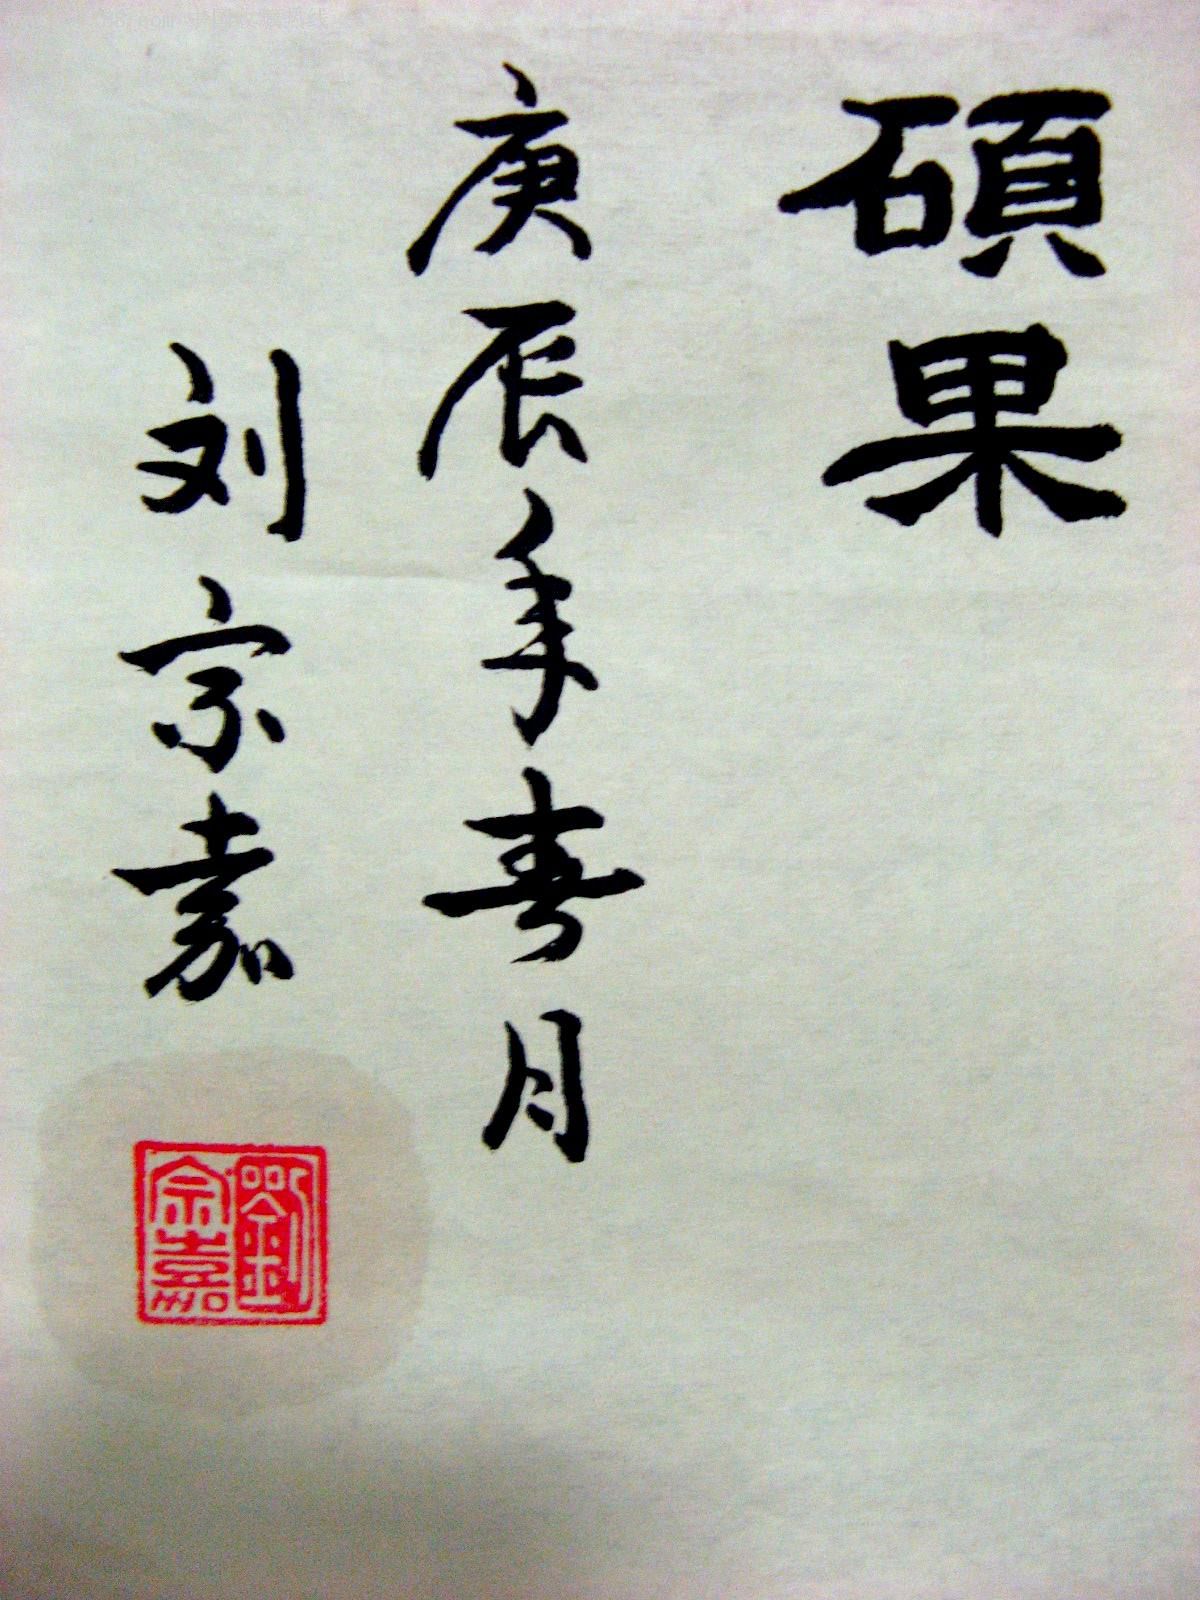 碩果
庚辰年春月
刘宗嘉
劉宗嘉